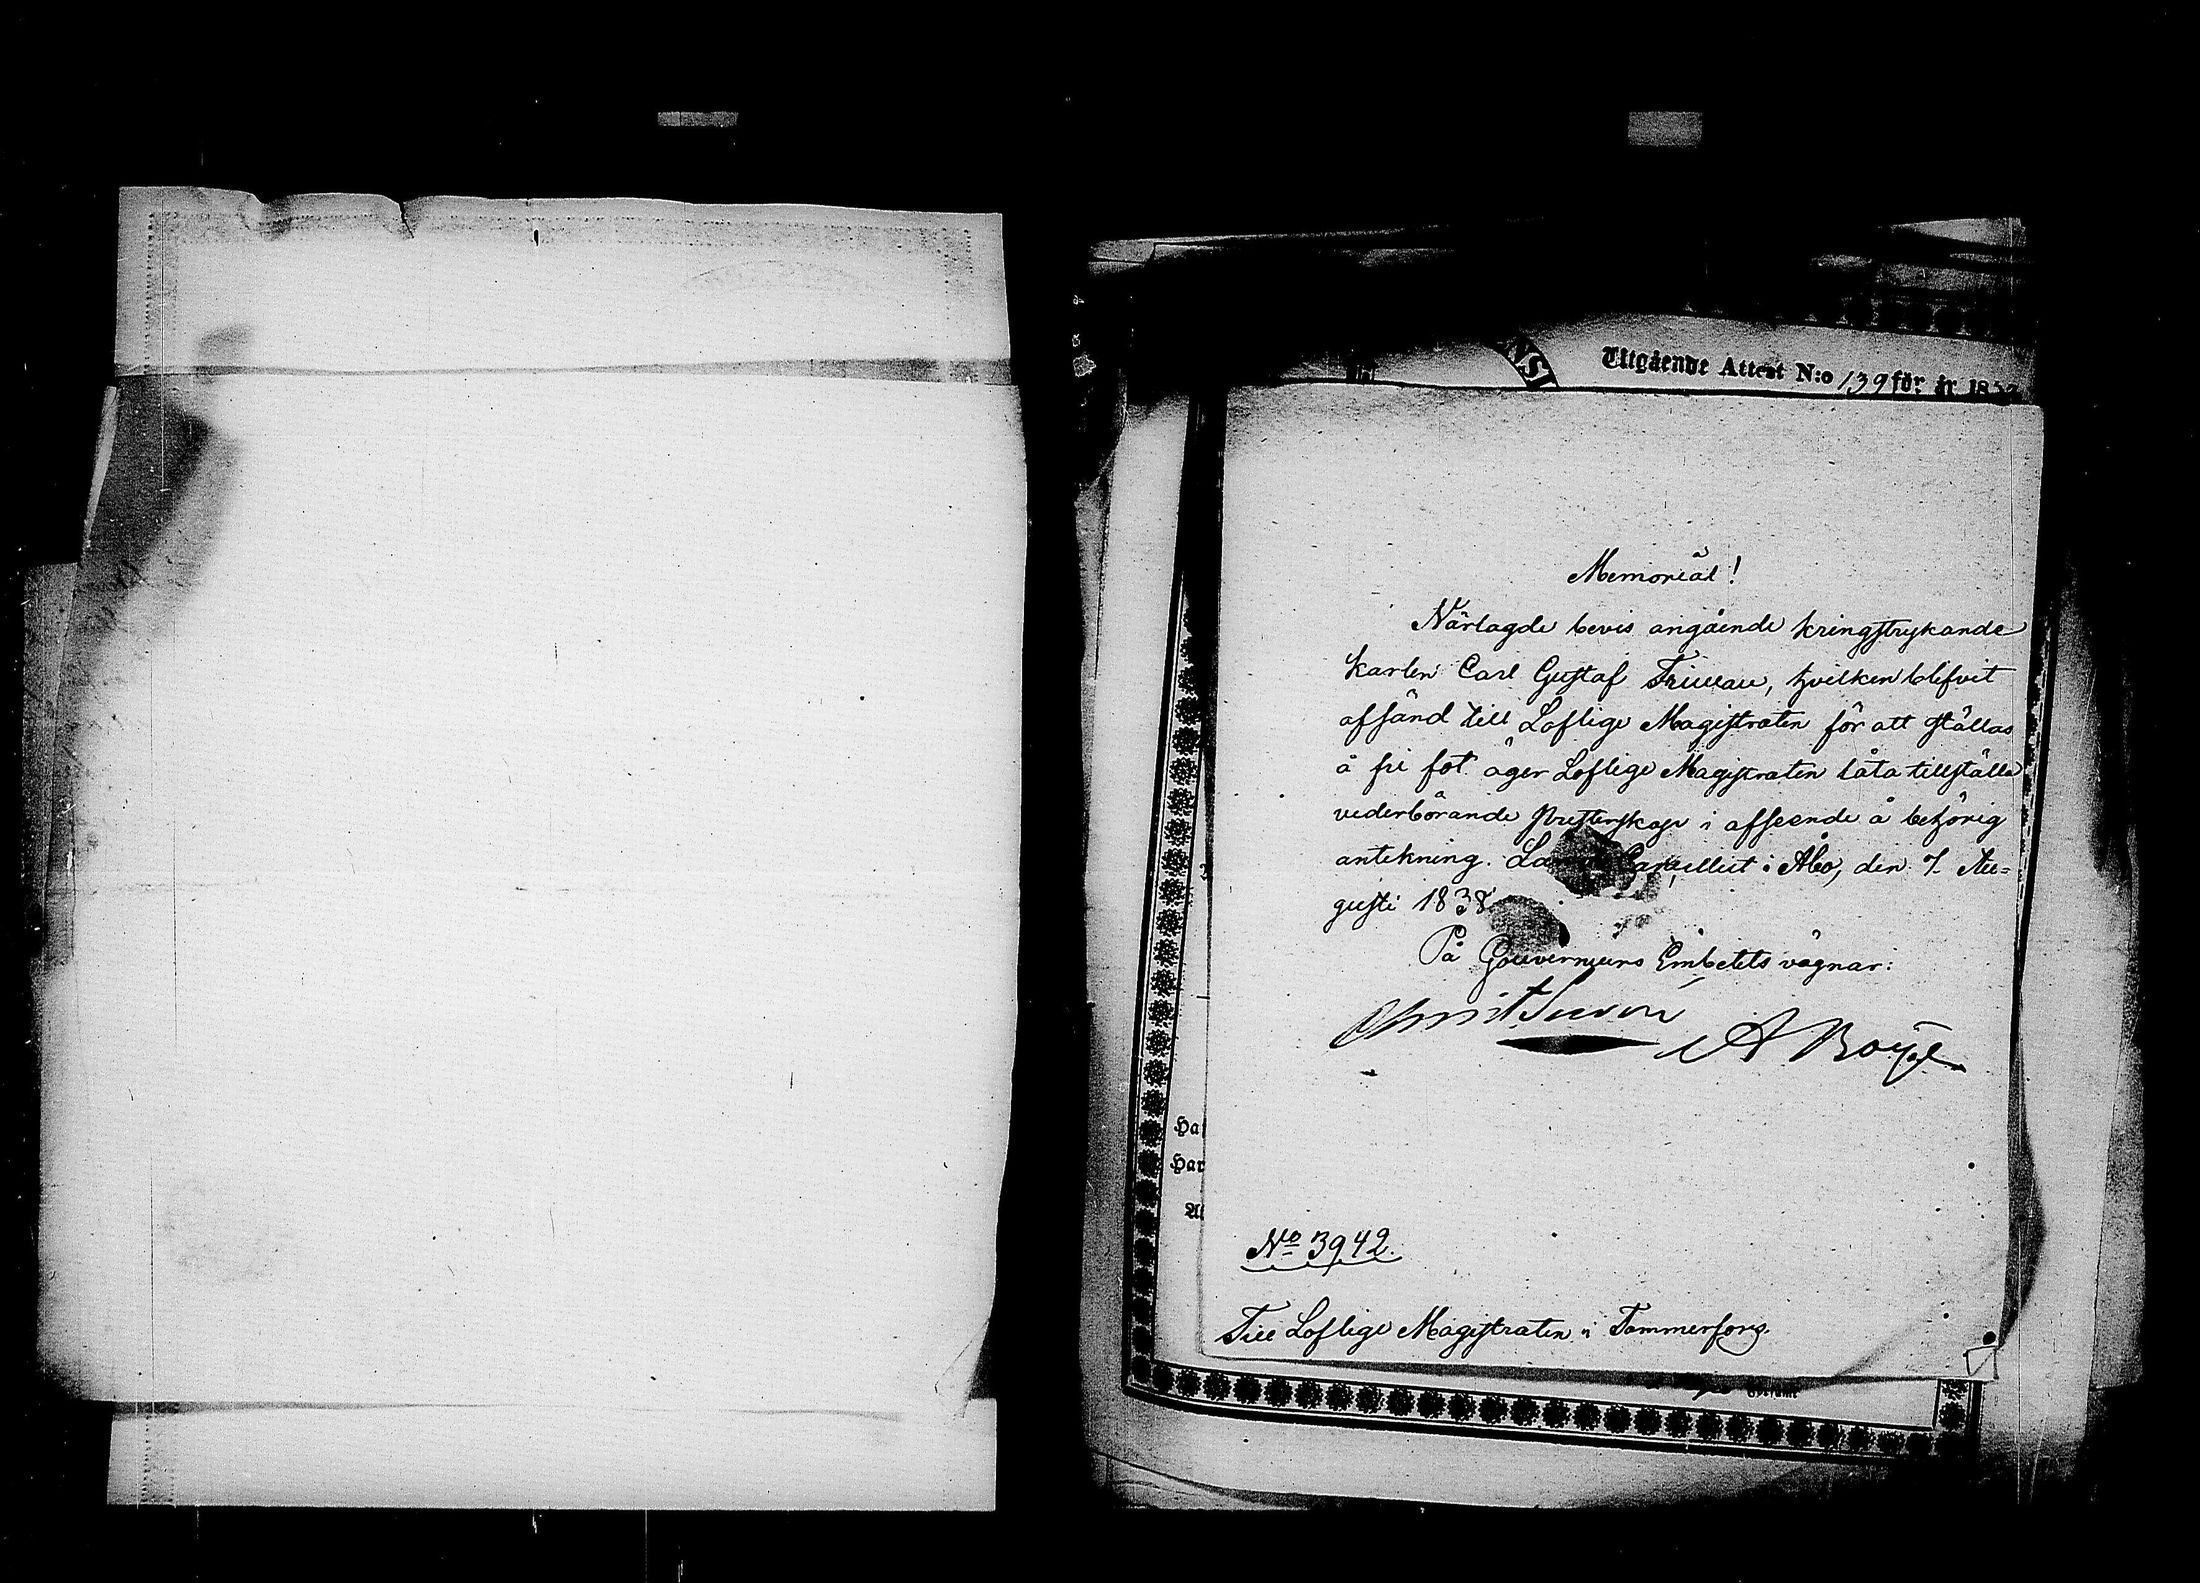 Utgående Attest N:o 139 för år 185
Memorial!
Närlagde bevis angående kringstrykande
karlen Carl Gustaf hvilken blefvit
afsänd till Loflige Magistraten för att ställas
å fri fot äger Loflige Magistraten låta tillställa
vederbörande Presterskap i afseende å behörig
antekning. Lands Cancelliet i Åbo, den 7 Au=
gusti 1838.
På Gouverneurs Embetets vägnar:
Ha
Har
No 3942.
Till Loflige Magistraten i Tammerfors.